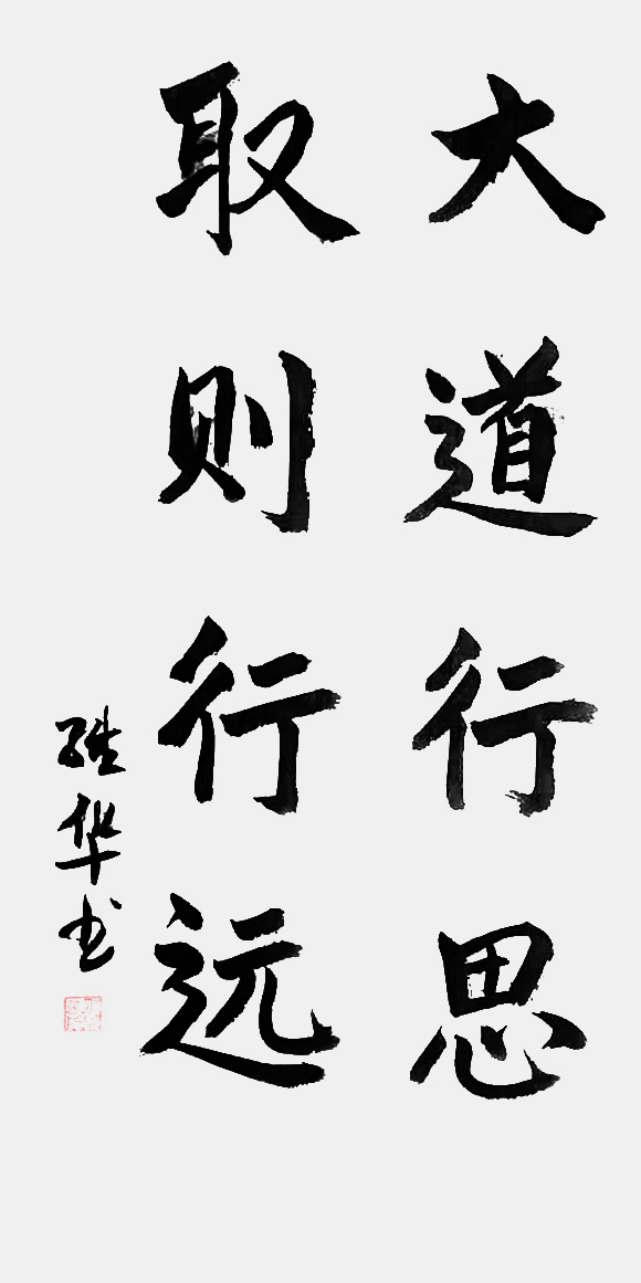 大道行思
取则行远
继华书